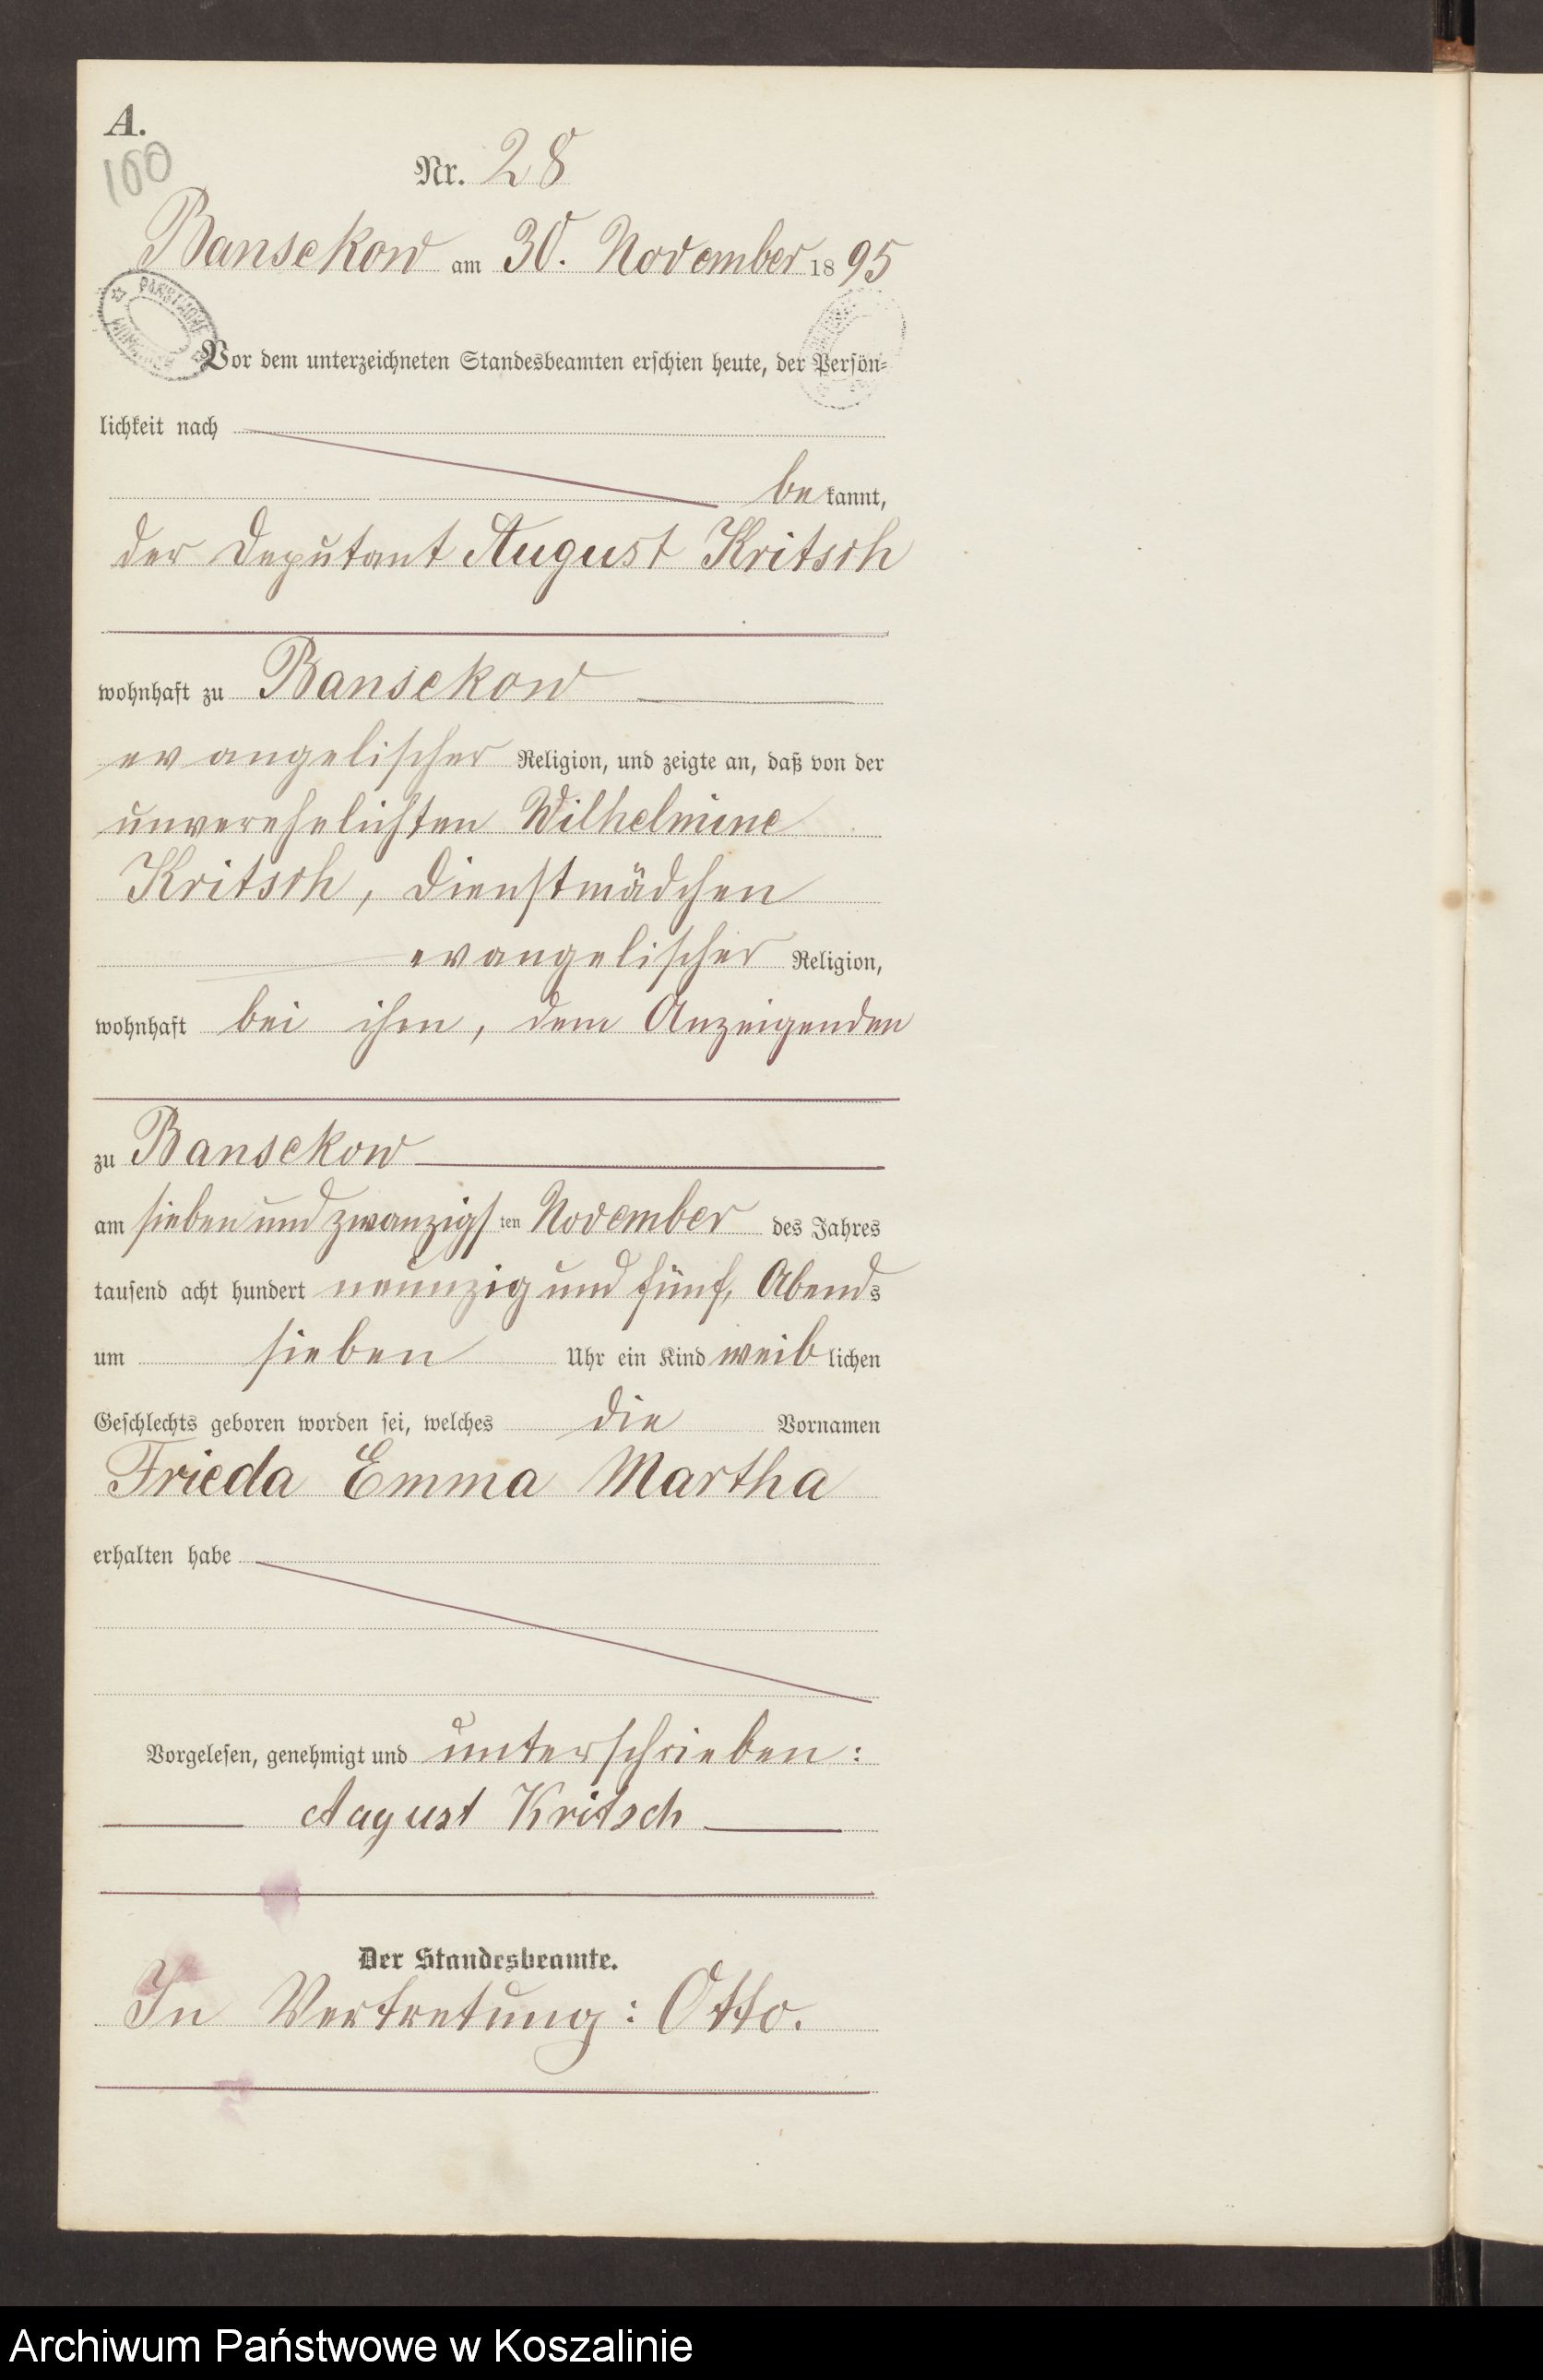 A.
100
Nr. 28
Bansekow am 30. November 1895
Vor dem unterzeichneten Standesbeamten erschien heute, der Persön=
lichkeit nach
bekannt,
der Deputant August Kritsch
wohnhaft zu Bansekow
evangelischer Religion, und zeigte an, daß von der
unverehelichten Wilhelmine
Kritsch, Dienstmädchen
evangelischer Religion,
wohnhaft bei ihm, dem Anzeigenden
zu Bansekow
am sieben und zwanzigsten November des Jahres
tausend acht hundert neunzig und fünf, Abends
um sieben Uhr ein Kind weiblichen
Geschlechts geboren worden sei, welches die Vornamen
Frieda Emma Martha
erhalten habe
Vorgelesen, genehmigt und unterschrieben:
August Kritsch
Der Standesbeamte.
In Vertretung: Otto.
Archiwum Państwowe w Koszalinie